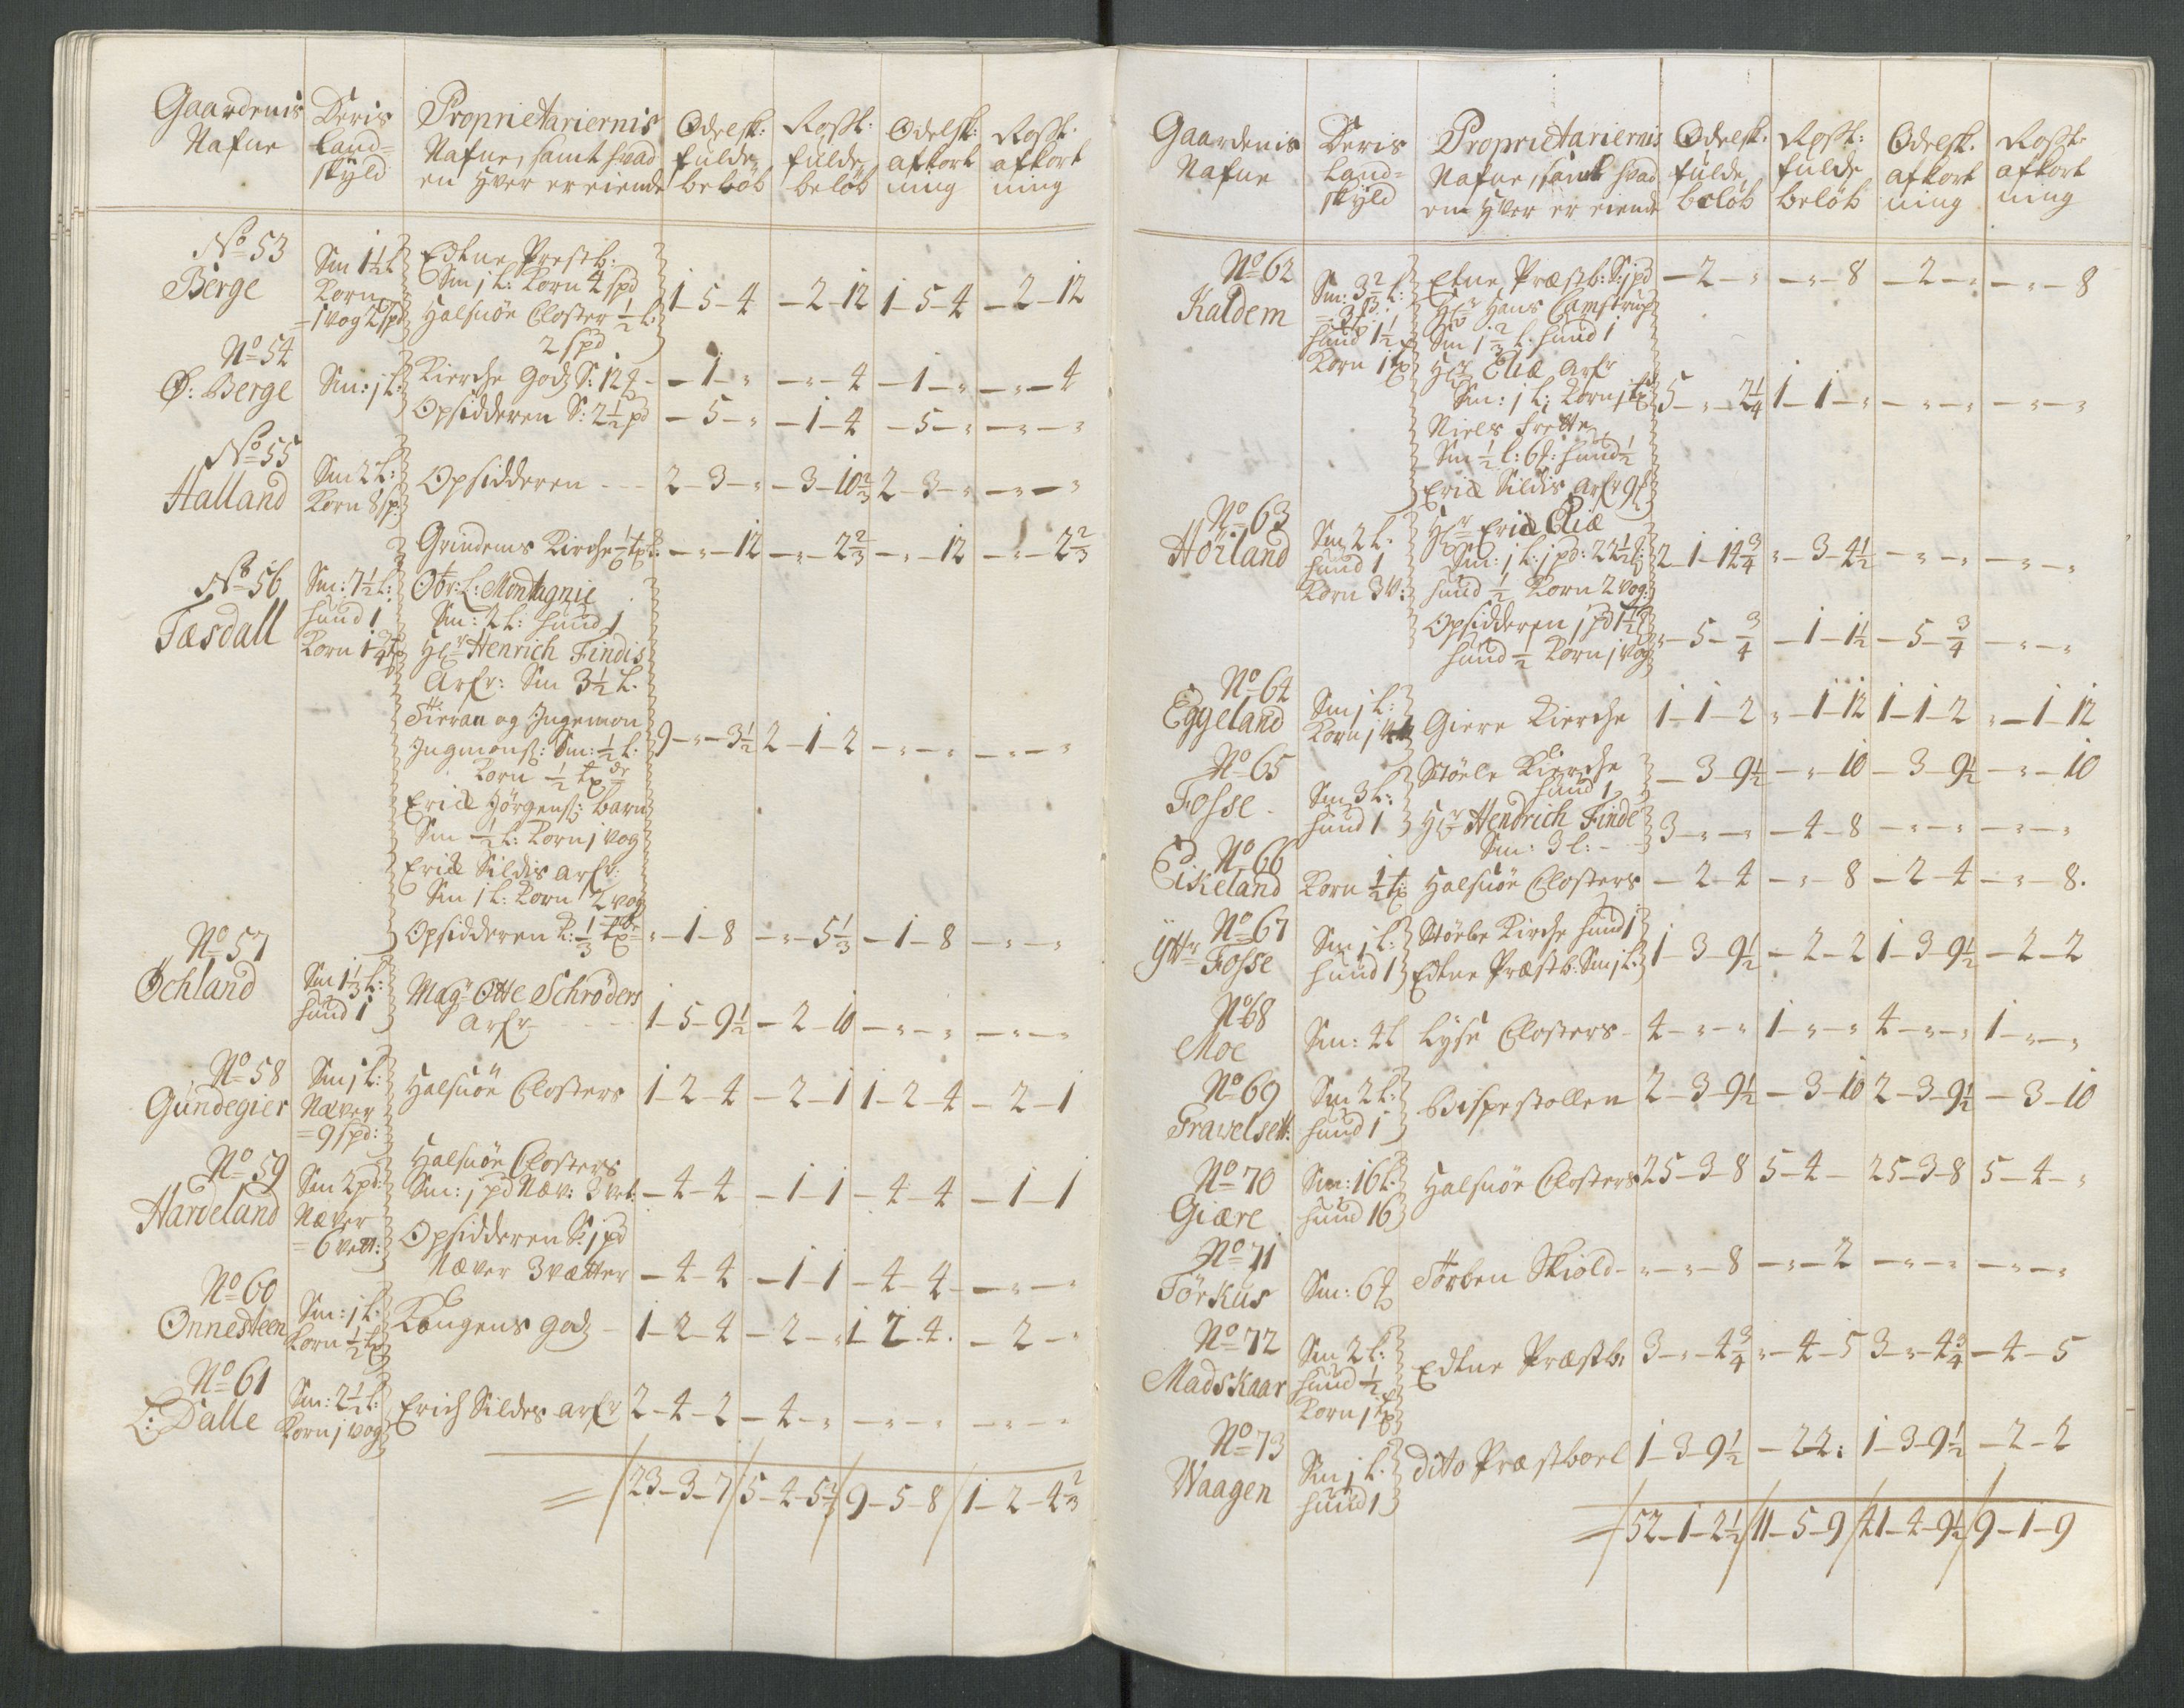 Gaardenis Nafne | Deris Land= skyld | Proprietariernis Nafne, samt hvad en hver er eiende | Odelsk: fulde beløb | Rosst: fulde beløb | Odelsk: afkort ning | Rosst. afkort ning
No 53
Berge
Sm 1½ L
Korn
=1 vog 2 spd
Edtne Prestb:
Sm j L: Korn 4 spd
Halsnöe Closter ½ L:
2 spd
1-5-4 | -2-12 | 1-5-4 | -2-12
No 54
Ø: Berge
Sm: j L:
Kierche godz S: 12
-1-" | -"-4 | -1-" | -"-4
Opsidderen S: 2½ pd
-5-" | -1-4 | -5-" | -"-"
No 55
Halland
Sm 2 L:
Korn 8 sp:
Opsidderen
2-3-" | -3-10⅔ | 2-3-" | -"-"
Grindems Kirche
-"-12 | -"-2⅔ | -"-12 | -"-2⅔
No 56
Tæsdall
Sm: 7½ L:
hund 1
Korn
Obr: L: Montagnie
Sm: 2 L: hund 1
Hr Henrich Findis
Arfr: Sm 3½ L.
Tieran og Ingemon
Ingmonss: Sm: ½ L.
Korn ½
9-"-3½ | 2-1-2 | -"-" | -"-"
Erick Hörgenss: barn
Sm ½ L: Korn j vog
Erick Sildis arfr:
Sm j L: Korn 2 vog
Opsidderen K: ⅓
"-1-8 | -"-5⅓ | -1-8 | -"-"
No 57
Öchland
Sm 1⅓ L:
hund 1
Magr Otte Schröders
Arfr
1-5-9½ | -2-10 | -"-" | -"-"
No 58
Gundegier
Sm j L:
Næver
=9 spd:
Halsnöe Closters
1-2-4 | -2-1 | 1-2-4 | -2-1
No 59
Hardeland
Sm 2 pd:
Næver
=6 vett:
Halsnöe Closters
Sm: j pd Næv: 3 vet:
-4-4 | -1-1 | -4-4 | -1-1
Opsidderen S: j pd
Næver 3 vætter
-4-4 | -1-1 | -4-4 | -"-"
No 60
Onnesteen
Sm: j L:
Korn ½
Kongens godz
1-2-4 | -2-" | 1 2-4. | -2-"
No 61
L: Dalle
Sm: 2½ L:
Korn j vog
Erich Sildes arfr
2-4-2 | -4-" | -"-" | -"-"
= /23-3-7/ 5-4-5⅓/ 9-5-8/ 1-2-4⅔
Gaardenis Nafne | Deris Land= skyld | Proprietariernis Nafne, samt hvad en hver er eiende | Odelsk. fulde beløb | Rosst: fulde beløb | Odelsk. afkort ning | Rosst: afkort ning
No 62
Kaldem
Sm: 3⅔ L:
hund 1½
Korn 1
Etne Præstb: S: j pd
-2-" | -"-8 | -2-" | -"-8
Hr Hans Camstrup
Sm 1⅔ L: hund 1
Hr Eliæ Arfr
Sm: j L: Korn j
5-"-2¼ | 1-1-" | -"-" | -"-"
Niels frette
Sm ½ L: 6 hund ½
Erick Sildis Arfr 9
No 63
Hoiland
Sm 2 L.
hund 1
Korn 3 V:
Hr Erick Eliæ
Sm: j L: j pd: 22½
hund ½ Korn 2 vog:
2-1-14¾ | "-3-4½ | -"-" | -"-"
Opsidderen j pd 1½
hund ½ Korn j vog
"-5-¾ | -1-1½ | -5-¾ | -"-"
No 64
Eggeland
Sm j L:
Korn j
Giere Kierche
1-1-2 | "-1-12 | 1-1-2 | "-1-12
No 65
Fosse
Sm 3 L:
hund 1
Störle Kierche
hund 1
-3-9½ | -"-10 | -3-9½ | -"-10
Hr Hendrich Finde
Sm: 3 L:
3-"-" | -4-8 | -"-" | -"-"
No 66
Eikeland
Korn ½
Halsnöe Closters
-2-4 | -"-8 | -2-4 | -"-8.
No 67
Yttr Fosse
Sm j L:
hund 1
Störle Kirche hund 1
Edtne Præstb: Sm j L:
1-3-9½ | -2-2 | 1-3-9½ | -2-2
No 68
Moe
Sm: 4 L
Lyse Closters
4-"-" | 1-"-" | 4-"-" | 1-"-"
No 69
Fravelsett:
Sm 2 L:
hund 1
Bispestollen
2-3-9½ | -3-10 | 2-3-9½ | -3-10
No 70
Giære
Sm: 16 L:
hund 16
Halsnöe Closters
25-3-8 | 5-4- | 25-3-8 | 5-4-"
No 71
Törkus
Sm: 6
Törben Skiold
-"-8 | -"-2 | -"-" | -"-"
No 72
Madskaar
Sm 2 L:
hund ½
Korn j
Edtne Præstb:
3-"-4¾ | "-4-5 | 3-"-4¾ | -4-5
No 73
Waagen
Sm j L.
hund 1
dito Præstboel
1-3-9½ | -2-2: | 1-3-9½ | -2-2
= /52-1-2½/ 11-5-9/ 41-4-9½/ 9-1-9